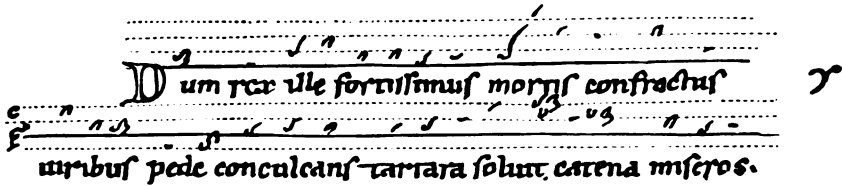 Dum rex ille fortissimus mortis confractus
uiribus pede conculcans tartara soluit. catena miseros.